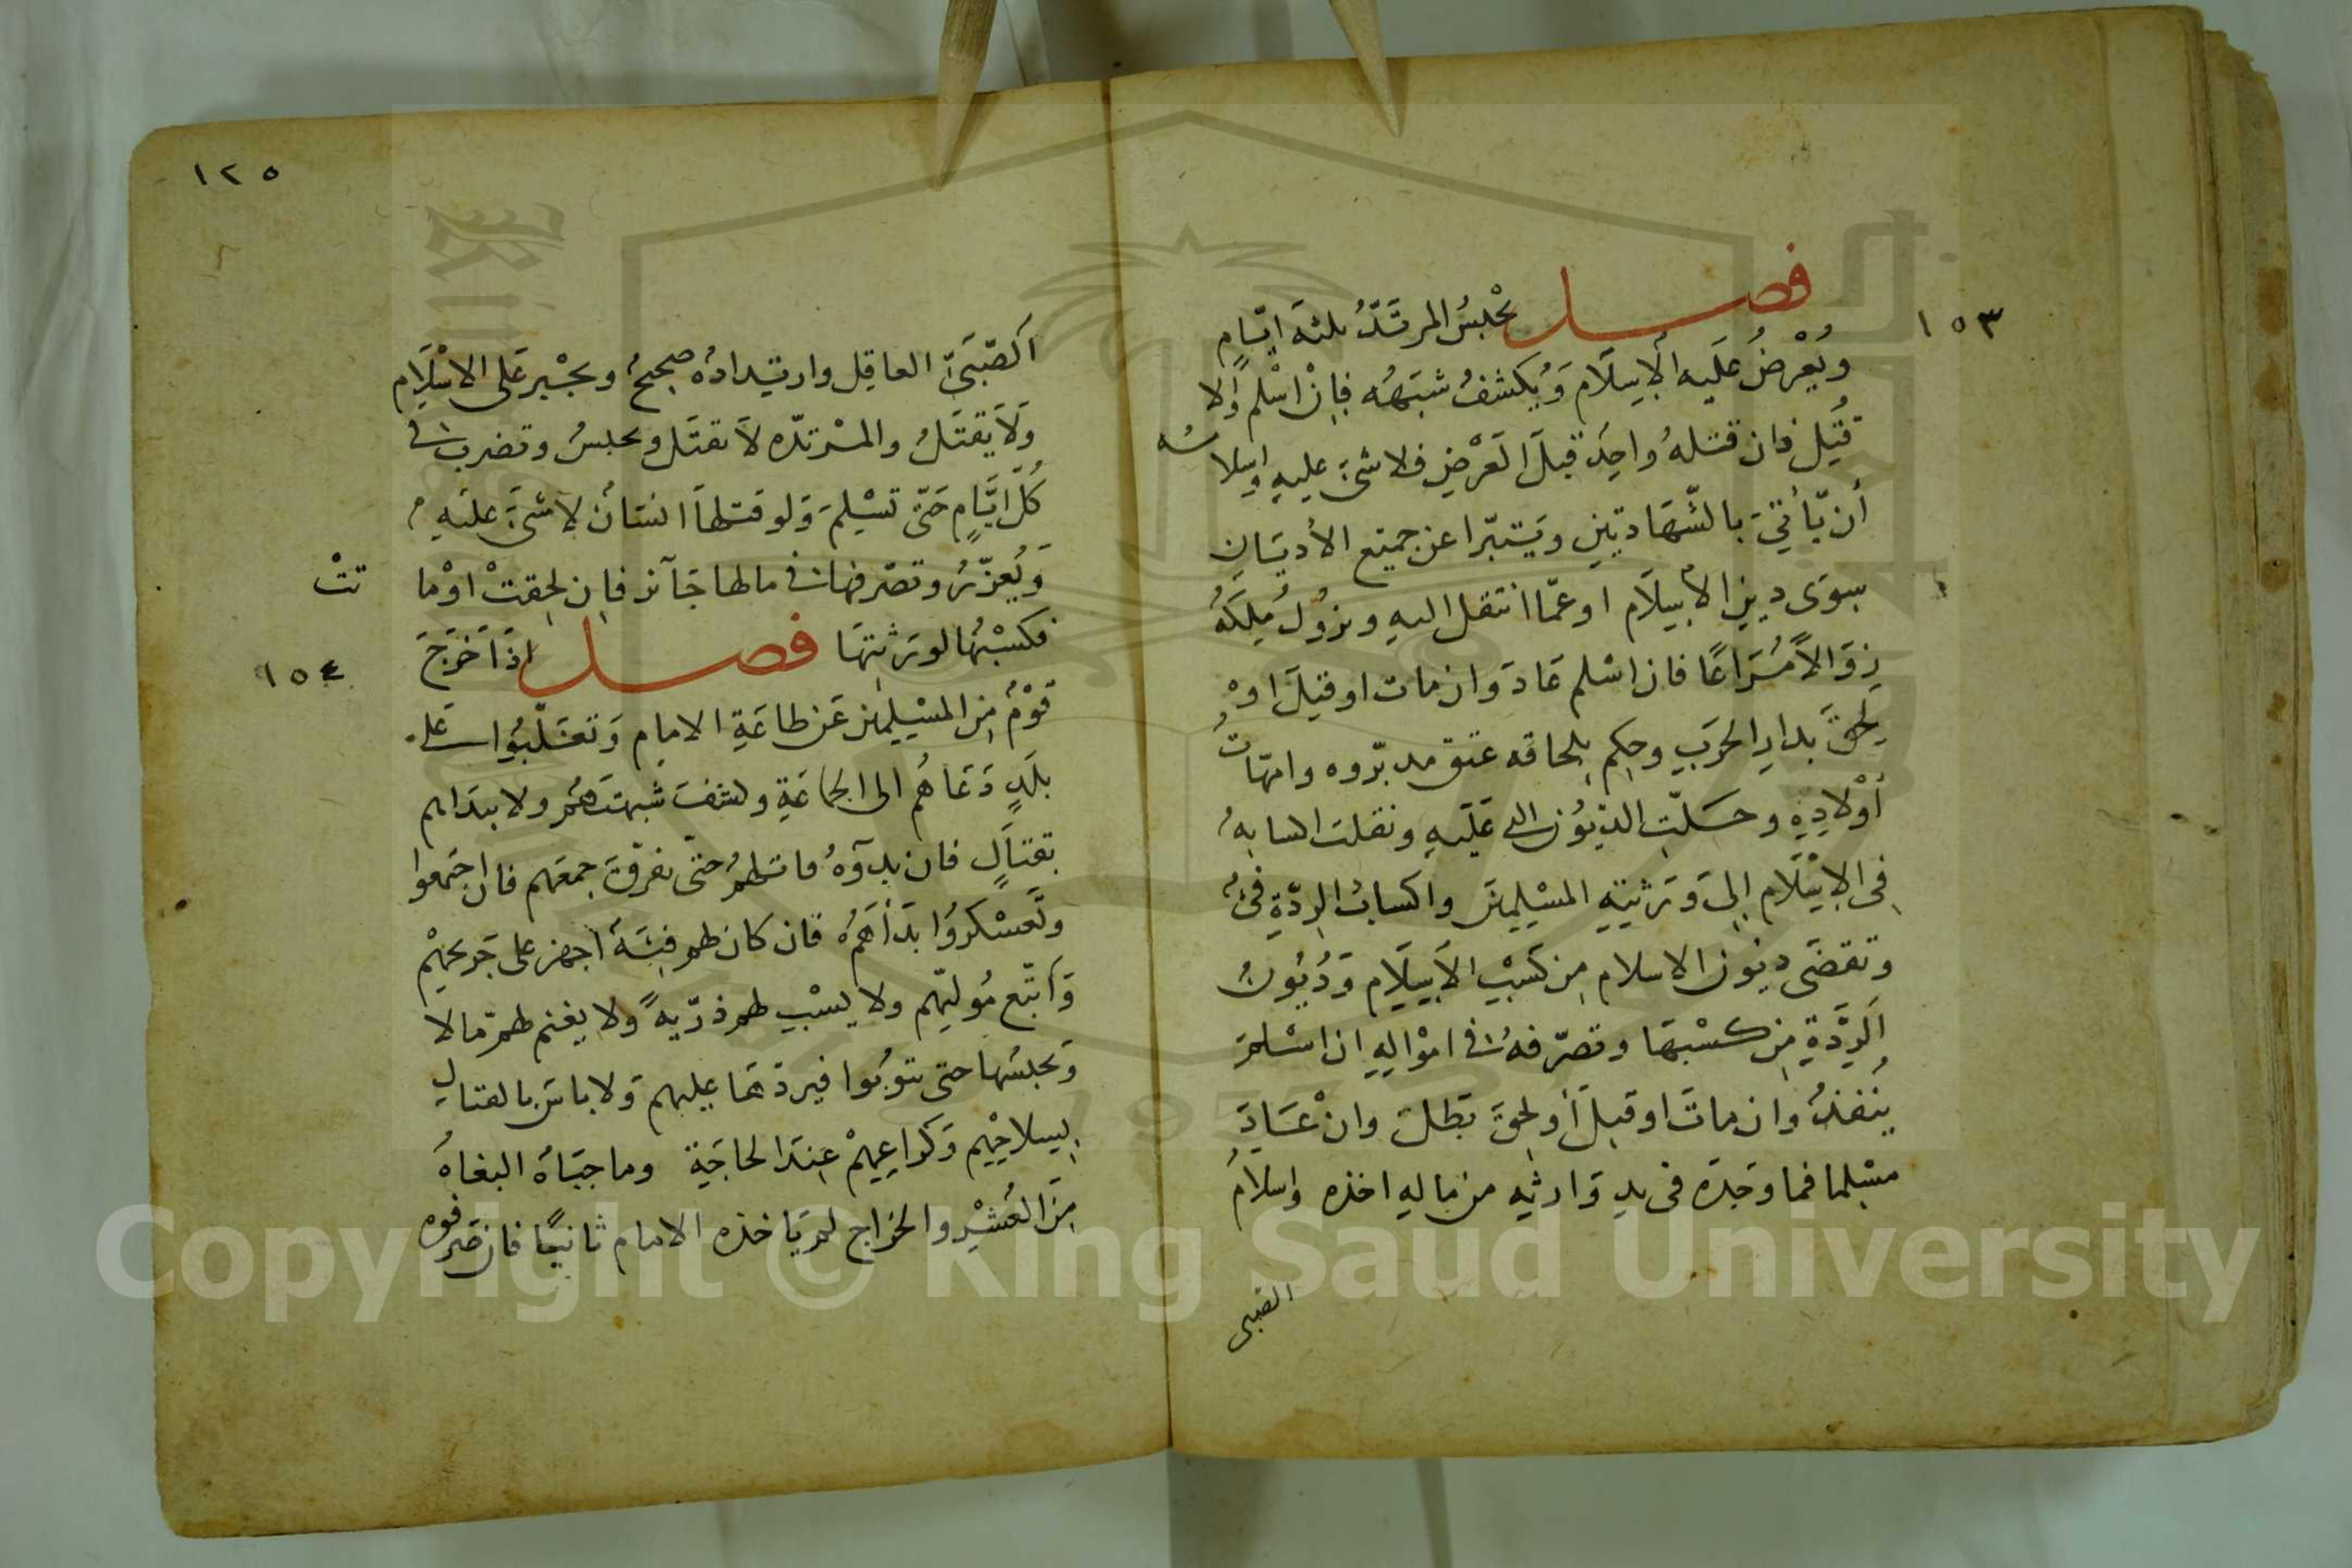 ١٥٣
فصل يحبس المرتد ثلثة ايام
ويعرض عليه الاسلام ويكشف شبهه فان اسلم والا
قتل فان قتله واحد قبل العرض فلا شئ عليه واسلامه
أن يأتي بالشهادتين ويتبرا عن جميع الأديان
سوى دين الاسلام او عما انتقل اليه ويزول ملكه
زوالا مراعا فان اسلم عاد وان مات او قتل او
لحق بدار الحرب وحكم بلحاقه عتق مدبروه وامهات
أولاده وحلت الديون التي عليه ونقلت اكسابه
في الاسلام إلى ورثته المسلمين واكساب الردة فئ
وتقضى ديون الاسلام من كسب الاسلام وديون
الردة من كسبها وتصرفه في امواله ان اسلم
ينفذ وان مات او قتل أو لحق بطلت وان عاد
مسلما فما وجده فى يد وارثه من ماله اخذه واسلام
الصبى
١٢٥
الصبي العاقل وارتداده صحيح ويجبر على الاسلام
ولا يقتل والمرتده لا تقتل وتحبس وتضرب فى
كل ايام حتى تسلم ولو قتلها انسان لا شئ عليه
ويعزر وتصرفها في مالها جائز فان لحقت او ما
تت
فكسبها لورثتها فصل اذا خرج
١٥٤
قوم من المسلمين عن طاعة الامام وتغلبوا على
بلد دعاهم الى الجماعة وكشف شبهتهم ولا يبداهم
بقتال فان بدوه قاتلهم حتى تفرق جمعهم فان اجتمعوا
وتعسكروا بدأهم فان كان لهم فئة اجهز على جريحهم
واتبع موليهم ولا يسبي لهم ذرية ولا يغنم لهم مالا
ويحبسها حتى يتوبوا فيردها عليهم ولا باس بالقتال
بسلاحهم وكراعهم عند الحاجة وما جباه البغاة
من العشر والخراج لم ياخذه الامام ثانيا فان صرفوه
Copyright © King Saud University